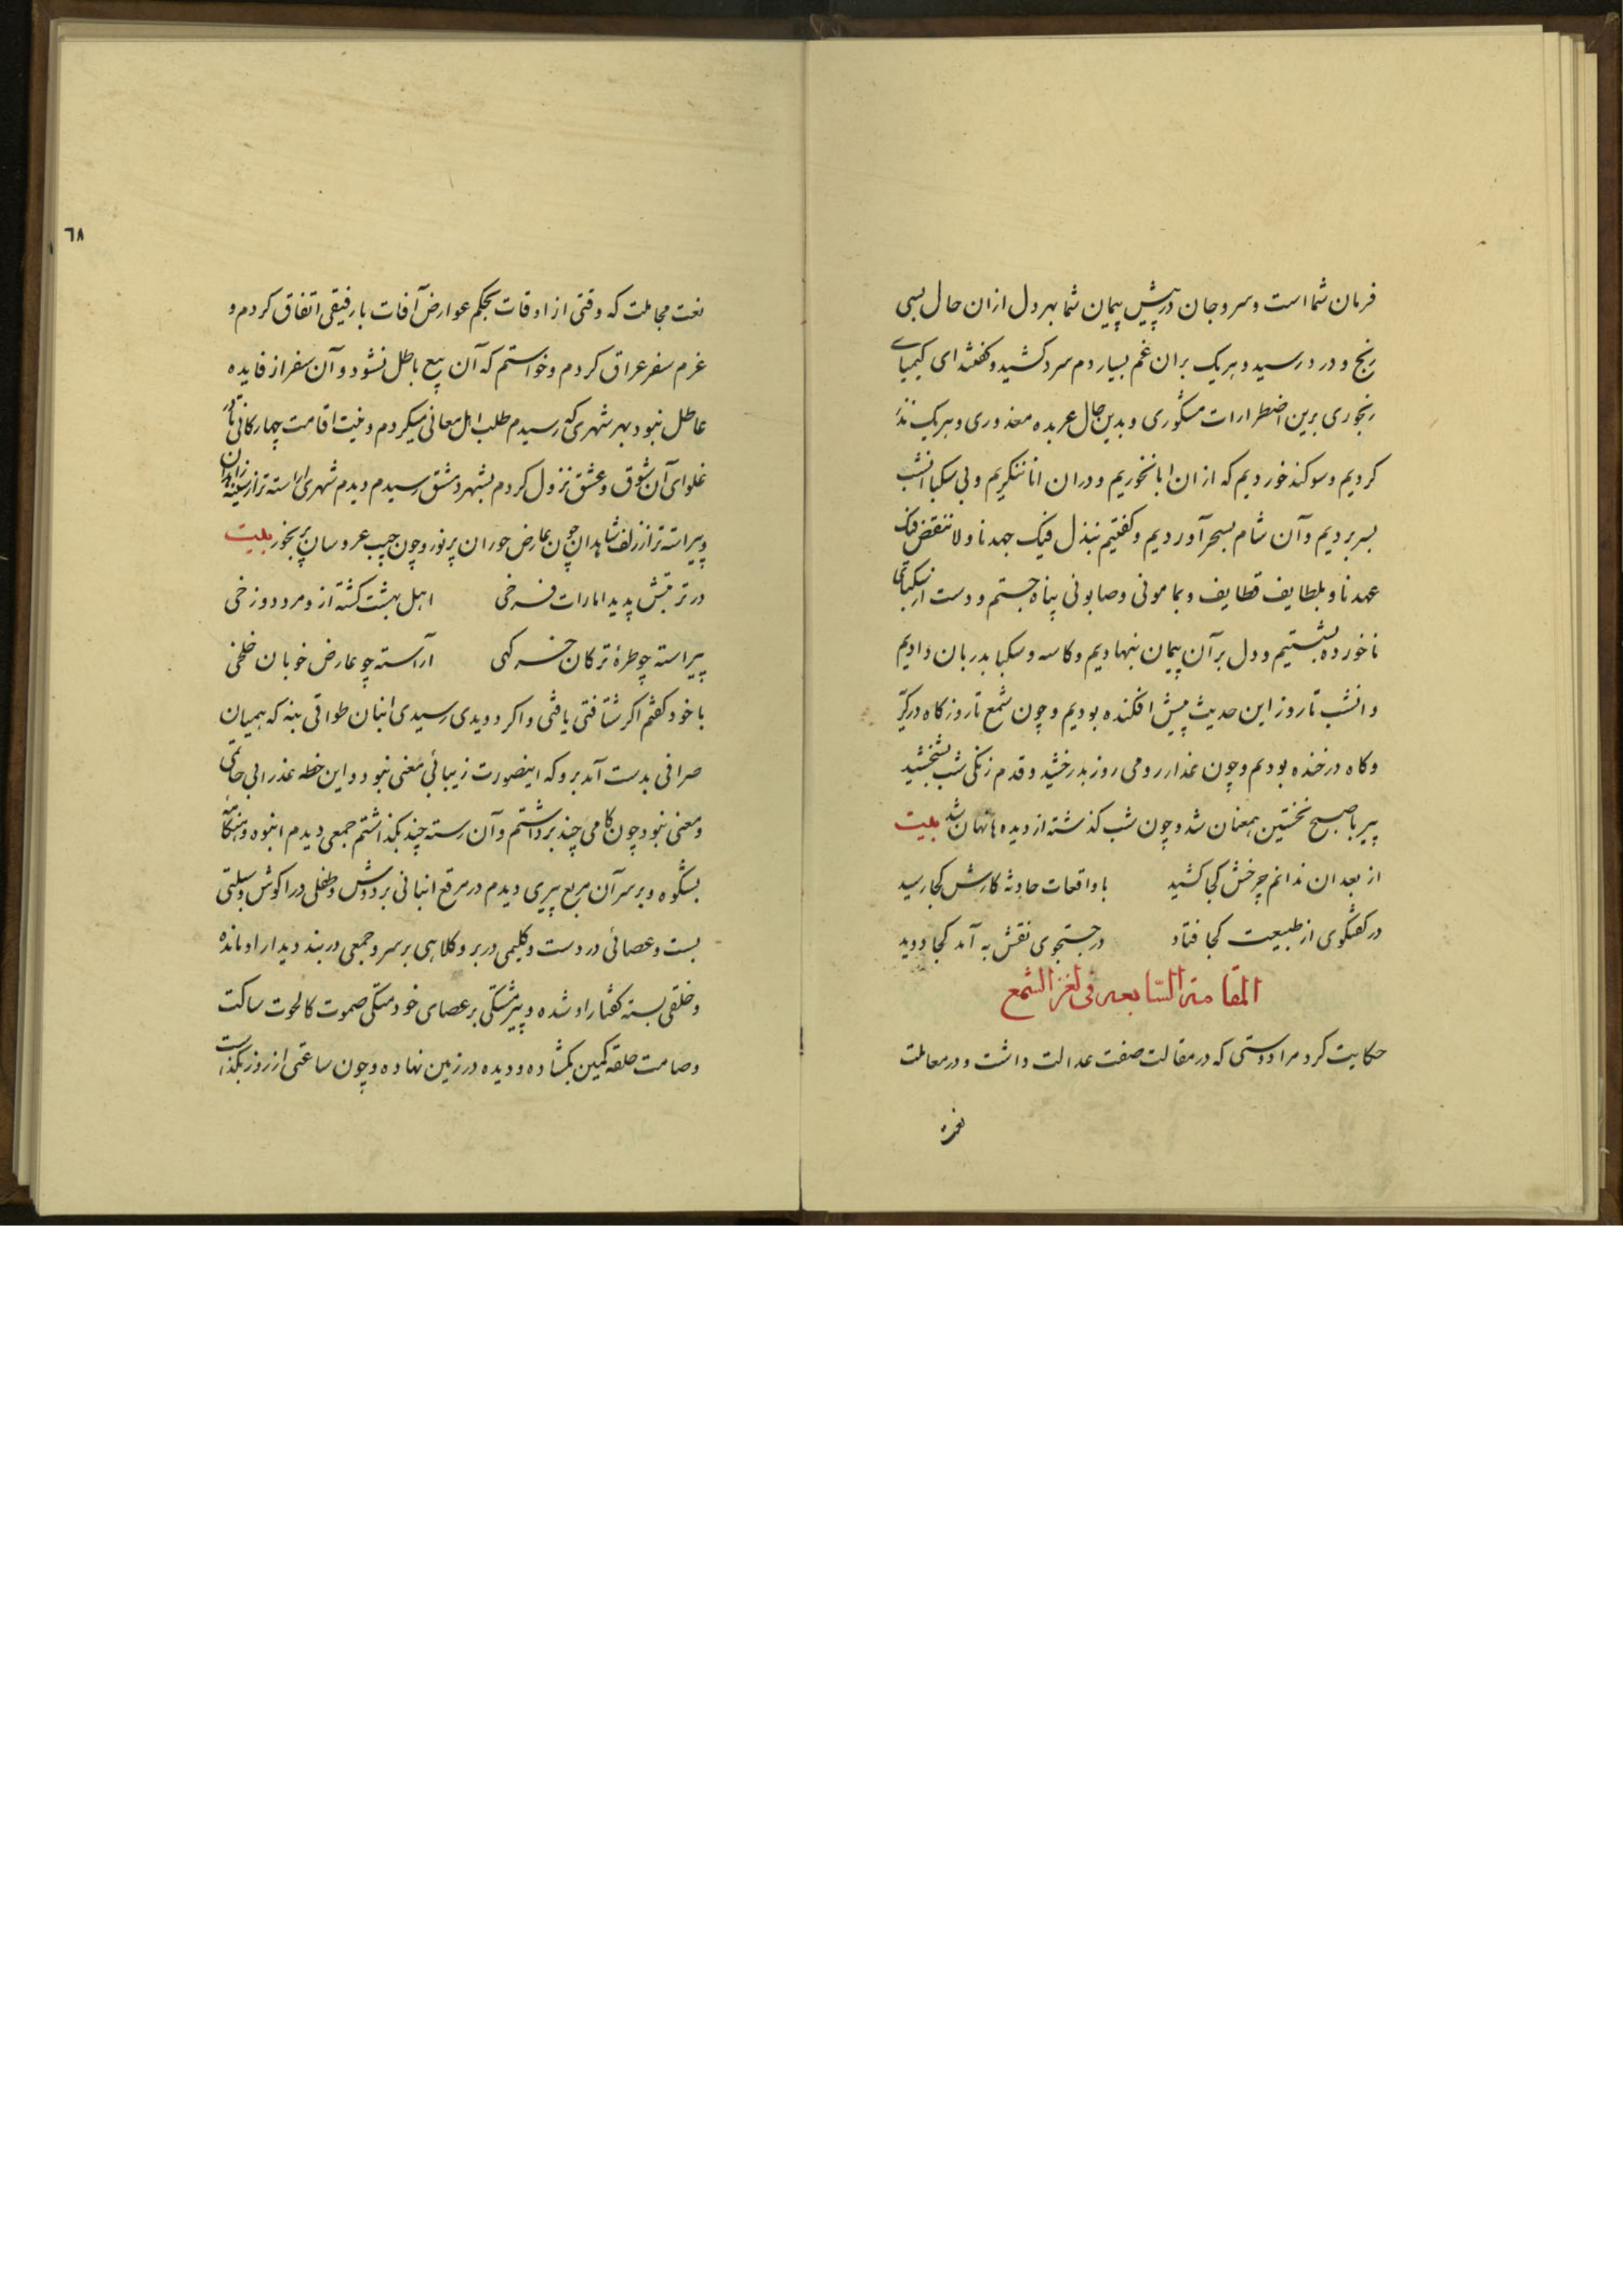 فرمان شما است و سر و جان در پیش پیمان شما بهر دل ازان حال بسی
رنج و درد رسید و هر یک بران غم بسیار دم سرد کشید و گفتند ای کیمیای
رنجوری برین اضطرارات مشکوری و بدین حال عربده معذوری و هر یک نذر
کردیم و سوکند خوردیم که ازان ابا نخوریم و دران انا ننکریم و بی سکبا انشب
بسر بردیم و آن شام بسحر آوردیم و کفتیم نبذل فیک جهدنا و لا ننقض فیک
عهدنا و بلطایف قطایف و بمامونی و صابونی پناه جستم و دست از سکبای
ناخورده بشستیم و دل بر آن پیمان بنهادیم و کاسه و سکبا بدربان دادیم
و انشب تا روز این حدیث پیش افکنده بودیم و چون شمع تا روز کاه در کریه
و کاه در خنده بودیم و چون عذار رومی روز بدرخشید و قدم زنکی شب بلخشید
پیر با صبح نخستین همعنان شد و چون شب کذشته از دیده ها نهان شد بیت
از بعد ان ندانم چرخش کجا کشید با واقعات حادثه کارش کجا رسید
در کفتکوی از طبیعت کجا فتاد در جستجوی نقش به آمد کجا دوید
المقامة السابعه فی لغز الشمع
حکایت کرد مرا دوستی که در مقالت صفت عدالت داشت و در معاملت
نعت
٦٨
نعت مجاملت که وقتی از اوقات بحکم عوارض آفات با رفیقی اتفاق کردم و
عزم سفر عراق کردم و خواستم که آن بیع باطل نشود و آن سفر از فایده
عاطل نبود بهر شهری که رسیدم طلب اهل معانی میکردم و نیت اقامت چهارکانی تا در
غلوای آن شوق و عشق نزول کردم بشهر دمشق رسیدم دیدم شهری اراسته تر از سینه زاهدان
و پیراسته تر از زلف شاهدان چون عارض حوران پر نور و چون جیب عروسان پر بخور بیت
در تربتش پدید امارات فرخی اهل بهشت کشته از و مرد دوزخی
پیراسته چو طرهٔ ترکان خرکهی آراسته چو عارض خوبان خلخی
با خود کفتم اکر شتافتی یافتی و اکر دویدی رسیدی انبان طوافی بنه که همیان
صرافی بدست آمد برو که اینصورت زیبا بی معنی نبود و این خطه عذرا بی حامی
و معنی نبود چون کامی چند برداشتم و آن رسته چند بکذاشتم جمعی دیدم انبوه و هنکامه
بشکوه و بر سر آن مربع پیری دیدم در مرقع انبانی بر دوش و طفلی در اکوش و سبلتی
بست و عصائی در دست و کلیمی در بر و کلاهی بر سر و جمعی در بند دیدار او مانده
و خلقی بسته کفتار او شده و پیر متکی بر عصای خود متکی صموت کالحوت ساکت
و صامت حلقه کمین بکشاده و دیده در زمین نهاده و چون ساعتی از روز بکذشت